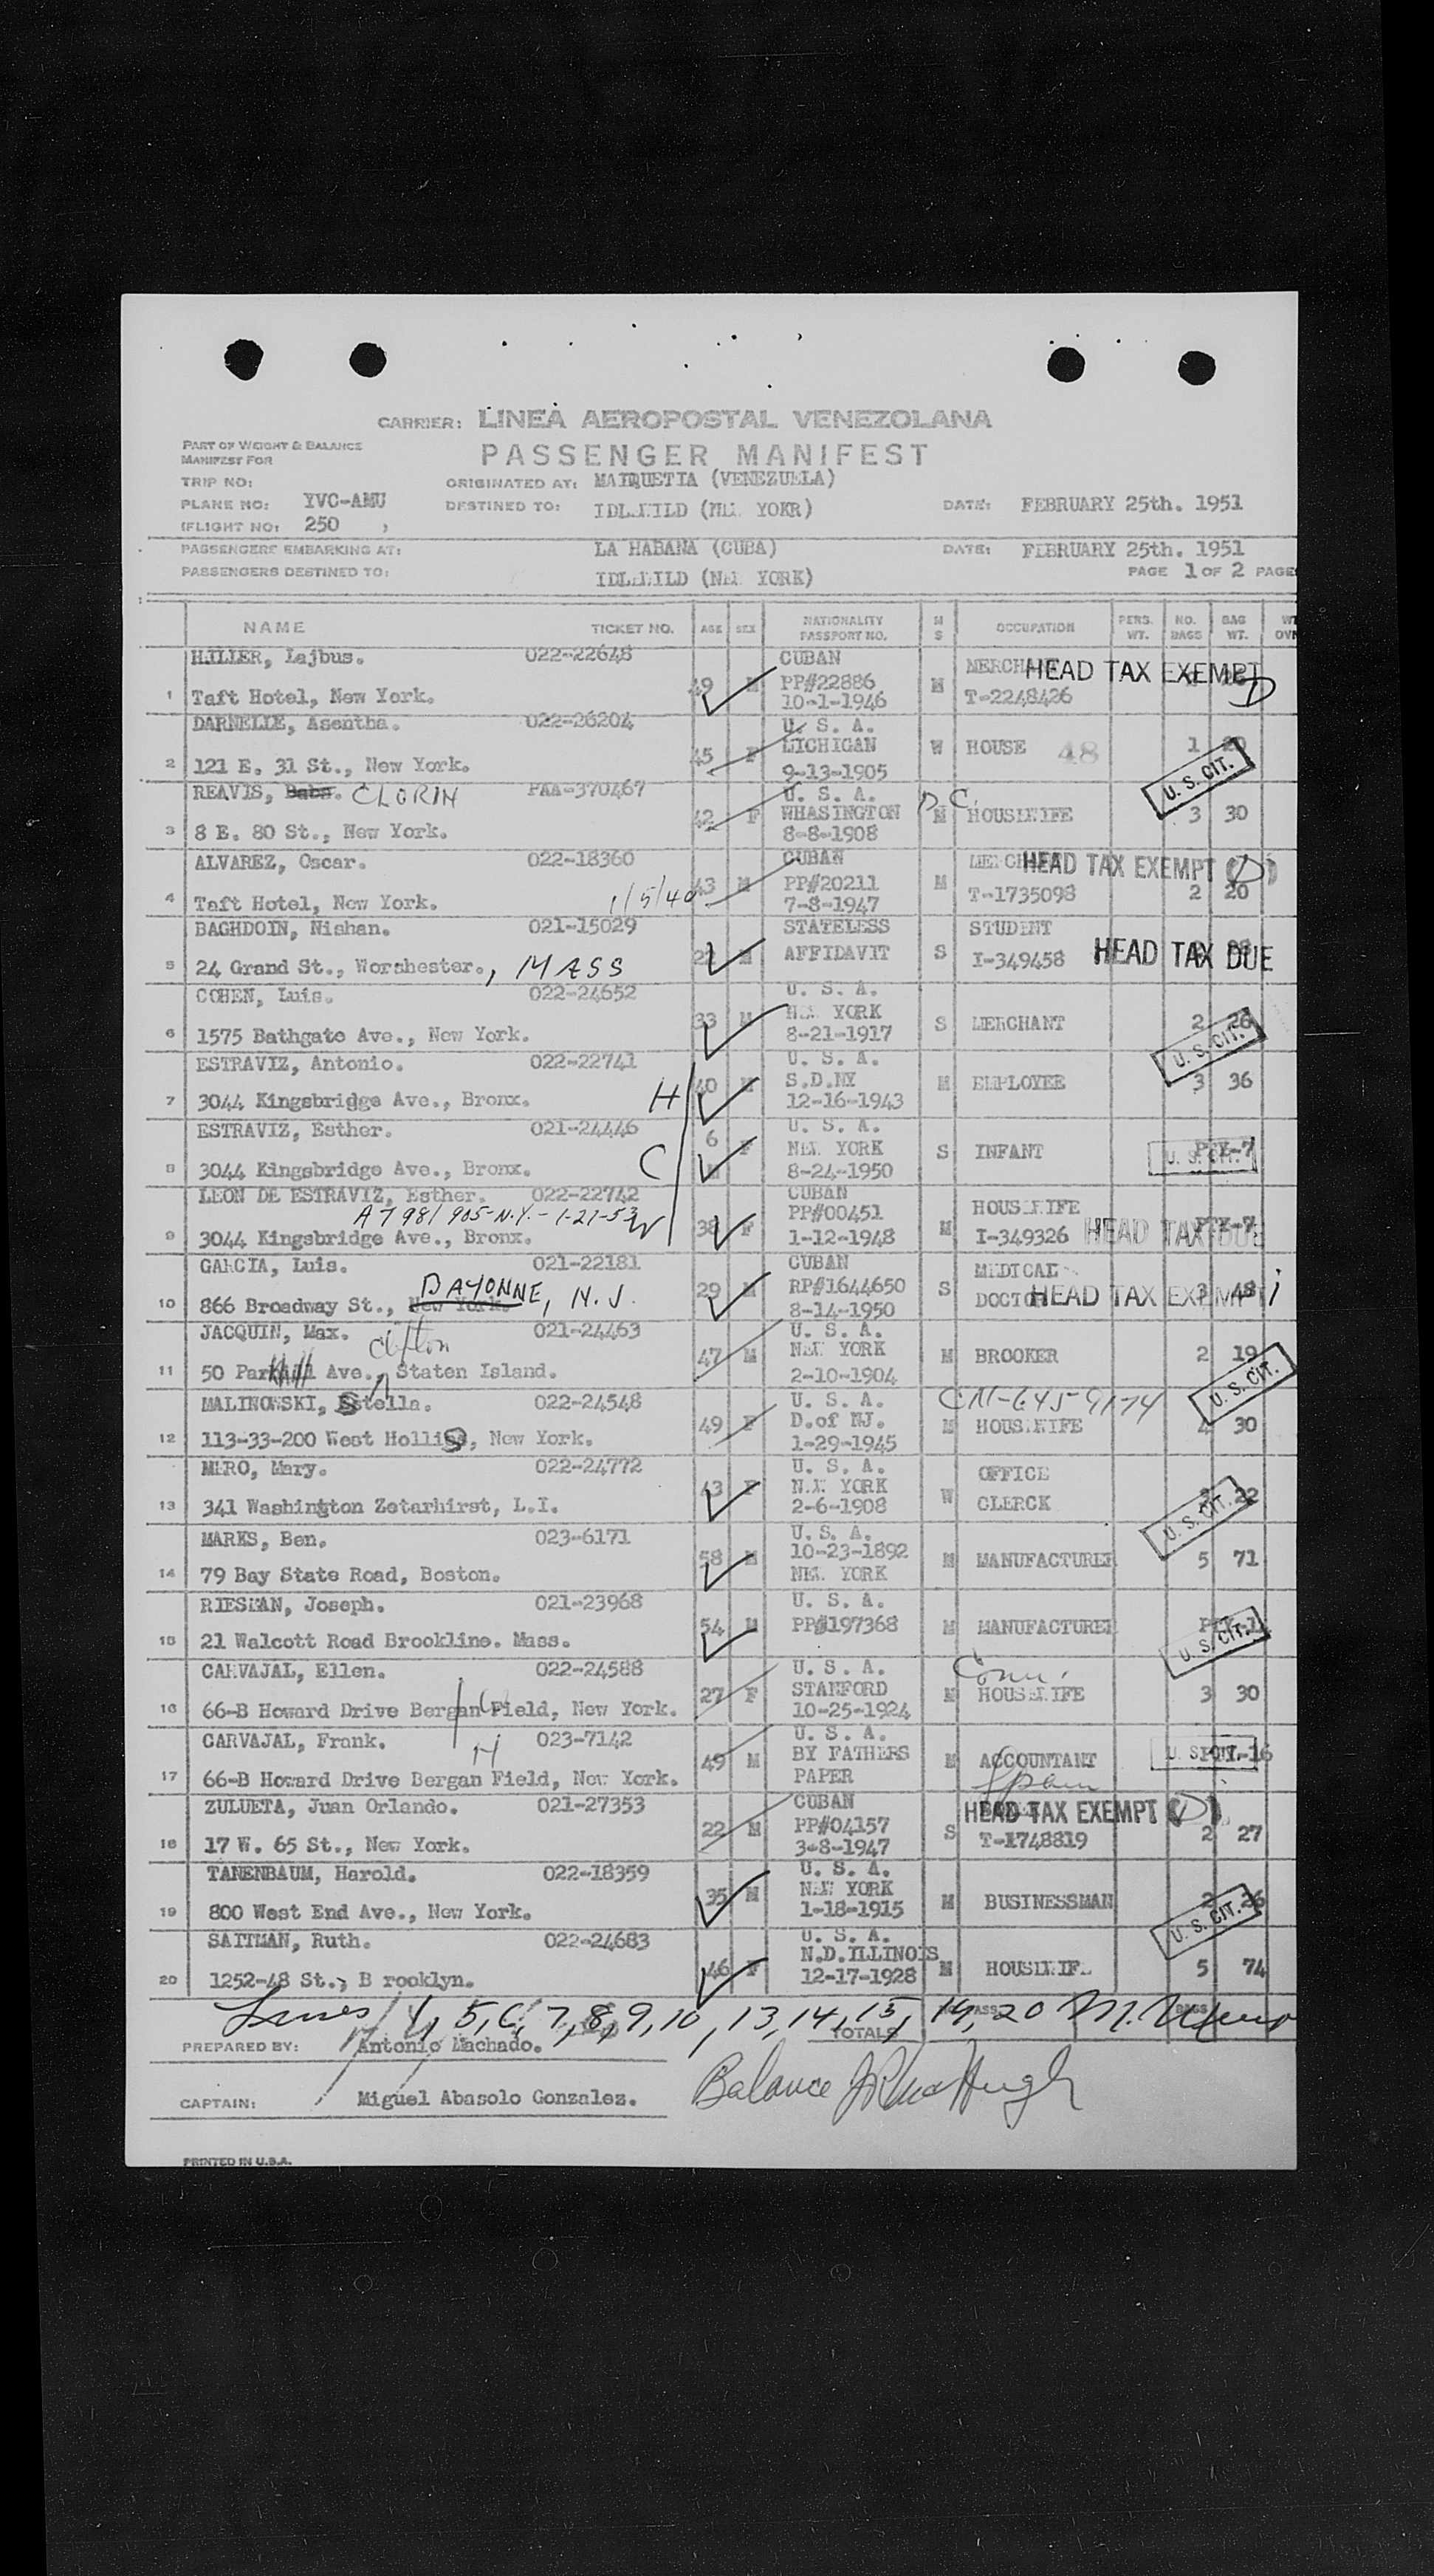 CARRIER: LINEA AEROPOSTAL VENEZOLANA
PART OF WEIGHT & BALANCE
MANIFEST FOR
PASSENGER MANIFEST
TRIP NO:
ORIGINATED AT: MAIQUETIA (VENEZUELA)
PLANE NO: YVC-AMU
DESTINED TO: IDLEWILD (NEW YOKR)
DATE: FEBRUARY 25th. 1951
(FLIGHT NO: 250 )
PASSENGERS EMBARKING AT: LA HABANA (CUBA) DATE: FEBRUARY 25th. 1951
PASSENGERS DESTINED TO: IDLEWILD (NEW YORK) PAGE 1 OF 2 PAGE
NAME TICKET NO. AGE SEX NATIONALITY PASSPORT NO. M S OCCUPATION PERS. WT. NO. BAGS BAG WT. WT OVN
HILLER, Lajbus. 022-22648 CUBAN
49 M PP#22886 M HEAD TAX EXEMPT D
1 Taft Hotel, New York. 10-1-1946 T-2248426
DARNELLE, Asentha. 022-26204 U. S. A.
45 F MICHIGAN W HOUSE 48 1 20
2 121 E. 31 St., New York. 9-13-1905 U. S. CIT.
REAVIS, CLORIN PAA-370467 U. S. A.
42 F WHASINGTON D.C. M HOUSEWIFE 3 30
3 8 E. 80 St., New York. 8-8-1908
ALVAREZ, Oscar. 022-18360 CUBAN HEAD TAX EXEMPT (D)
43 M PP#20211 M T-1735098 2 20
4 Taft Hotel, New York. 1/5/40 7-8-1947
BAGHDOIN, Nishan. 021-15029 STATELESS STUDENT
22 M AFFIDAVIT S I-349458 HEAD TAX DUE
5 24 Grand St., Worshester., MASS
COHEN, Luis. 022-24652 U. S. A.
33 M NEW YORK S MERCHANT 2 26
6 1575 Bathgate Ave., New York. 8-21-1917 U. S. CIT.
ESTRAVIZ, Antonio. 022-22741 U. S. A.
H 40 M S.D.NY M EMPLOYEE 3 36
7 3044 Kingsbridge Ave., Bronx. 12-16-1943
ESTRAVIZ, Esther. 021-24446 U. S. A.
C 6 M F NEW YORK S INFANT PTX-7
8 3044 Kingsbridge Ave., Bronx. 8-24-1950 U. S. CIT.
LEON DE ESTRAVIZ, Esther. 022-22742 CUBAN
A7981905-N.Y.-1-21-53 W 38 F PP#00451 M HOUSEWIFE PTX-7
9 3044 Kingsbridge Ave., Bronx. 1-12-1948 I-349326 HEAD TAX DUE
GARCIA, Luis. 021-22181 CUBAN MEDICAL
BAYONNE, N.J. 29 M RP#1644650 S DOCTOR HEAD TAX EXEMPT 3 48
10 866 Broadway St., New York. 8-14-1950
JACQUIN, Max. 021-24463 U. S. A.
Clifton 47 M NEW YORK M BROOKER 2 19
11 50 Parkhill Ave., Staten Island. 2-10-1904 U. S. CIT.
MALINOWSKI, Stella. 022-24548 U. S. A.
49 F D.of NJ. M HOUSEWIFE 4 30
12 113-33-200 West Hollis, New York. 1-29-1945
MIRO, Mary. 022-24772 U. S. A.
43 F N.W YORK W OFFICE CLERCK 22
13 341 Washington Zetarhirst, L.I. 2-6-1908 U. S. CIT.
MARKS, Ben. 023-6171 U. S. A.
58 M 10-23-1892 M MANUFACTURER 5 71
14 79 Bay State Road, Boston. NEW YORK
RIESMAN, Joseph. 021-23968 U. S. A.
54 M PP#197368 M MANUFACTURER
15 21 Walcott Road Brookline. Mass. U. S. CIT.
CARVAJAL, Ellen. 022-24588 U. S. A. Conn.
27 F STAMFORD M HOUSEWIFE 3 30
16 66-B Howard Drive Bergan Field, New York. 10-25-1924
CARVAJAL, Frank. 023-7142 U. S. A.
H 49 M BY FATHERS M ACCOUNTANT
17 66-B Howard Drive Bergan Field, New York. PAPER Spain
ZULUETA, Juan Orlando. 021-27353 CUBAN HEAD TAX EXEMPT (D)
22 M PP#04157 S T-1748819 2 27
18 17 W. 65 St., New York. 3-8-1947
TANENBAUM, Harold. 022-18359 U. S. A.
35 M NEW YORK M BUSINESSMAN 2 26
19 800 West End Ave., New York. 1-18-1915 U. S. CIT.
SAITMAN, Ruth. 022-24683 U. S. A.
46 F N.D.ILLINOIS M HOUSEWIFE 5 74
20 1252-48 St., B rooklyn. 12-17-1928
Lines 1, 5, 6, 7, 8, 9, 10, 13, 14, 15, 19, 20
TOTALS
PREPARED BY: Antonio Machado.
Balance
CAPTAIN: Miguel Abasolo Gonzalez.
PRINTED IN U.S.A.